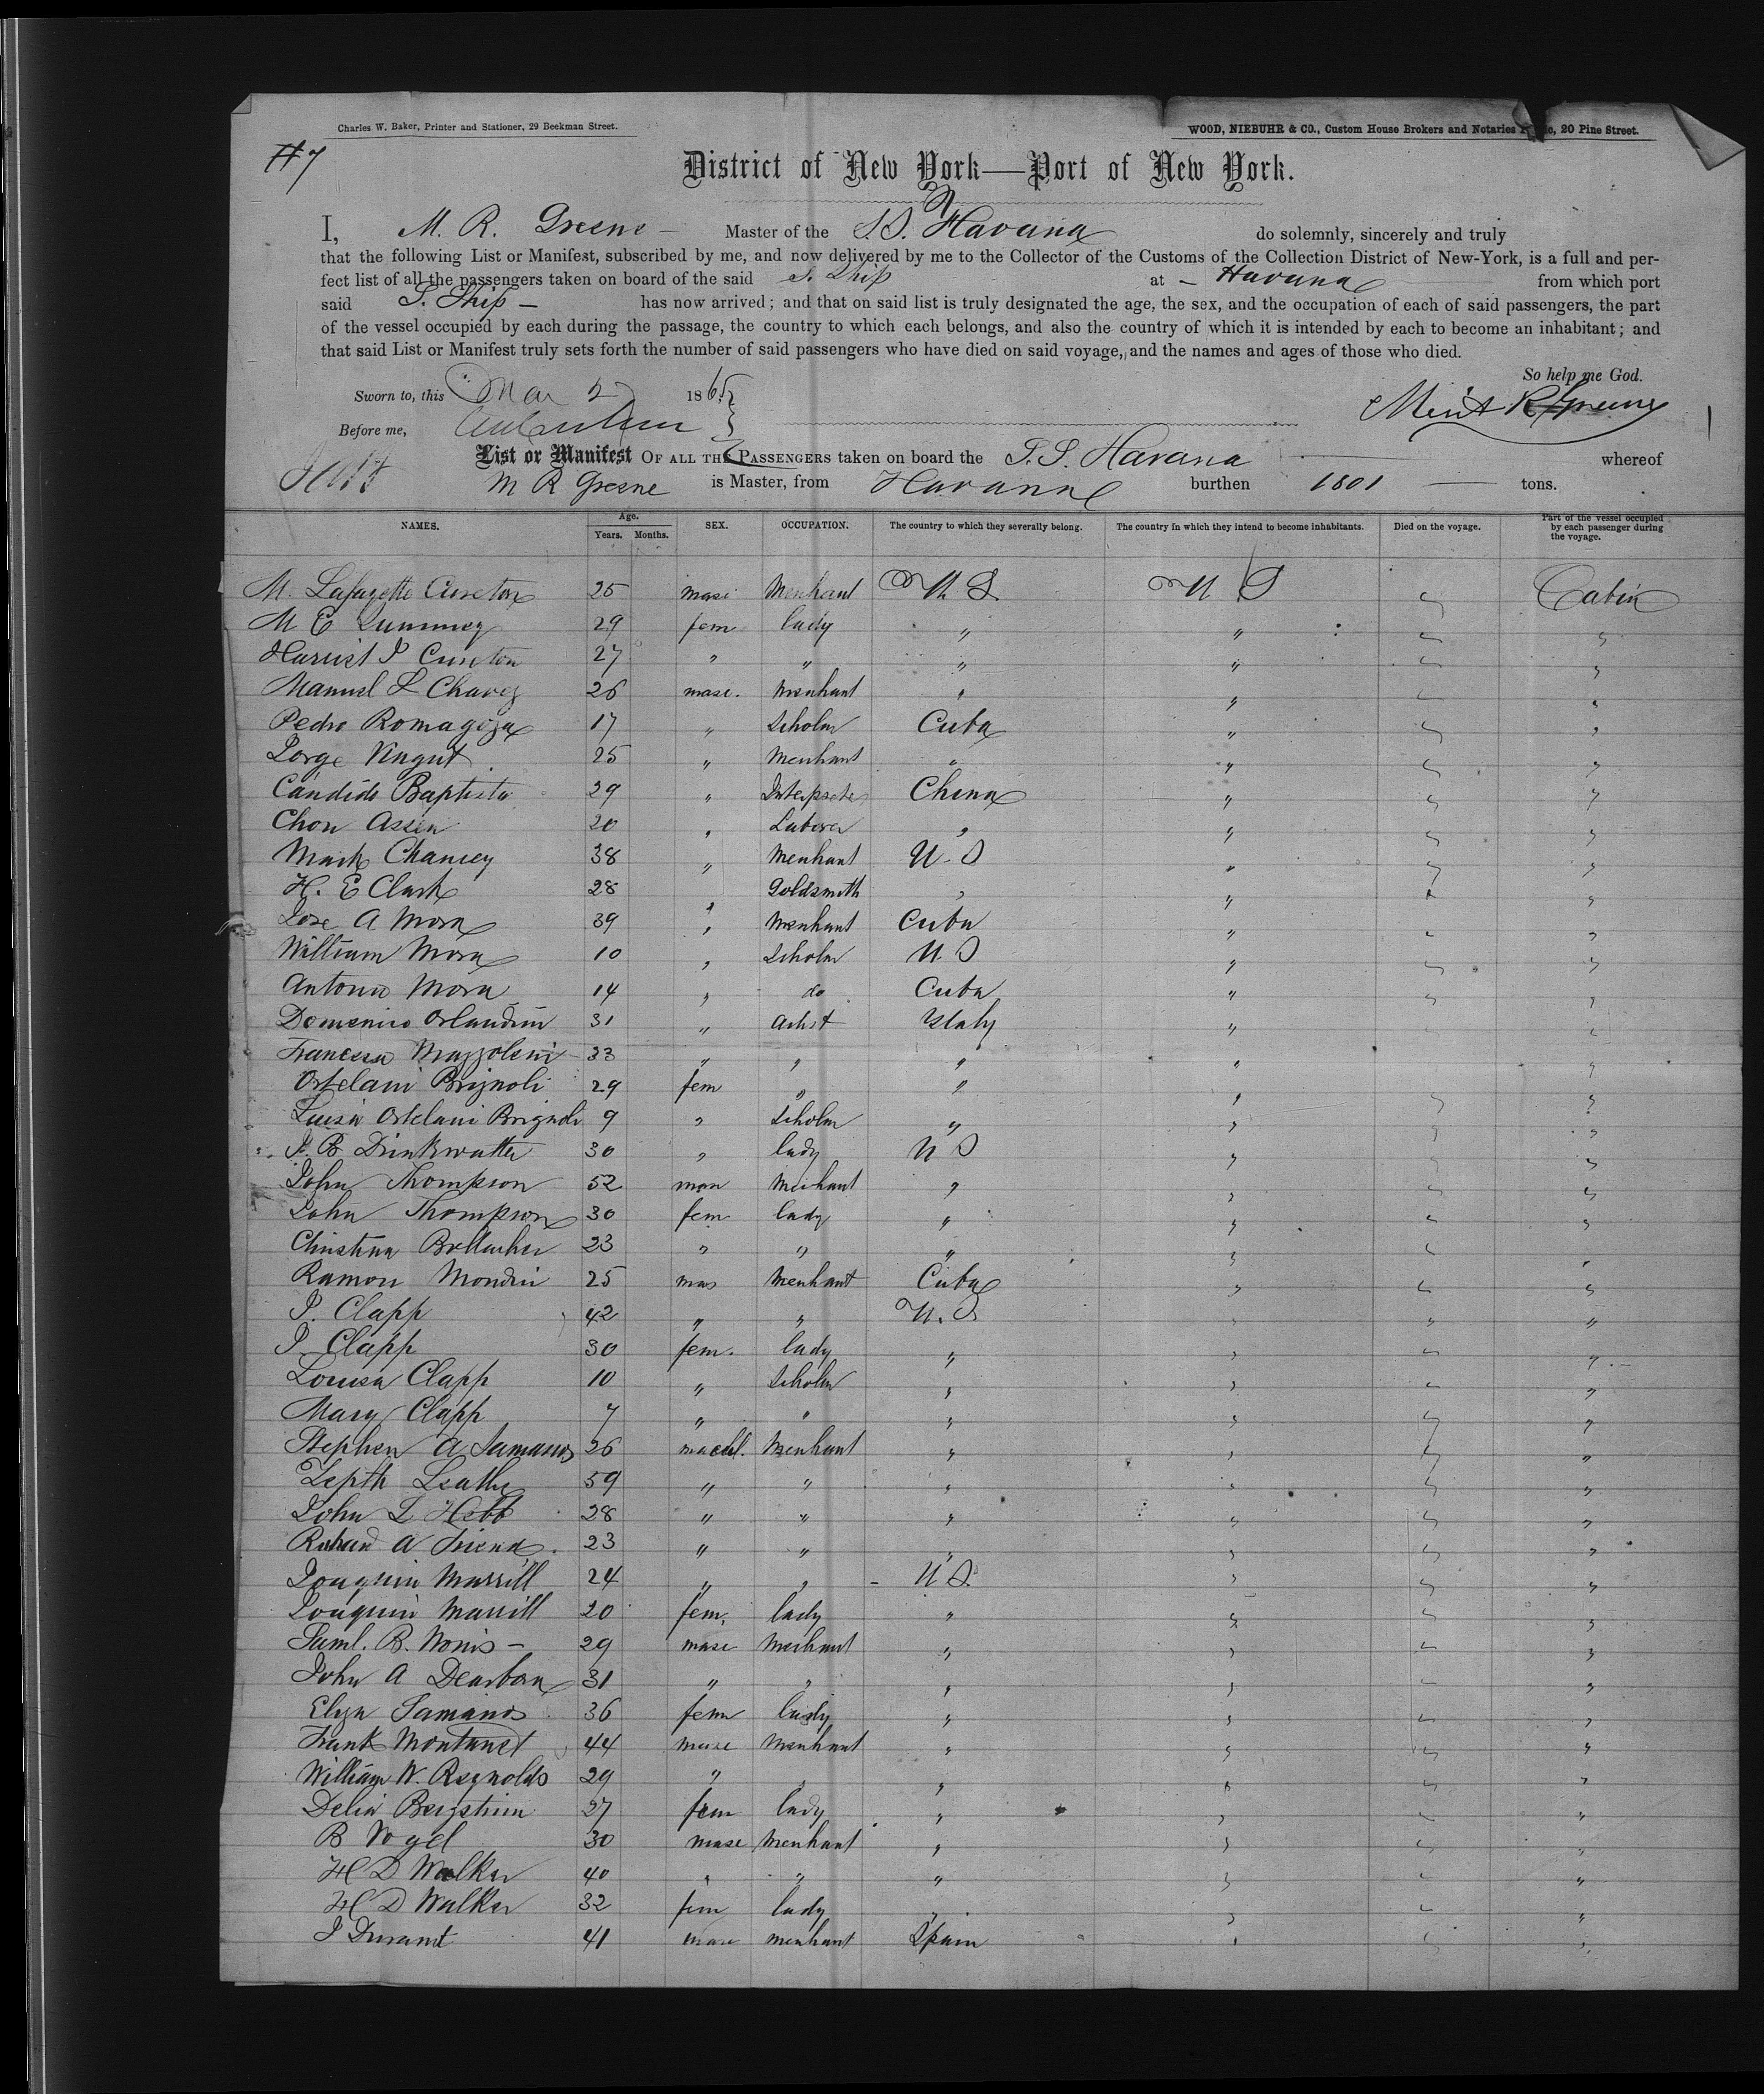 Charles W. Baker, Printer and Stationer, 29 Beekman Street. WOOD, NIEBUHR & CO., Custom House Brokers and Notaries 20 Pine Street.
#7
District of New York—Port of New York.
I, M. R. Greene — Master of the S.S. Havana do solemnly, sincerely and truly
that the following List or Manifest, subscribed by me, and now delivered by me to the Collector of the Customs of the Collection District of New-York, is a full and per-
fect list of all the passengers taken on board of the said S. Ship at — Havana from which port
said S. Ship — has now arrived; and that on said list is truly designated the age, the sex, and the occupation of each of said passengers, the part
of the vessel occupied by each during the passage, the country to which each belongs, and also the country of which it is intended by each to become an inhabitant; and
that said List or Manifest truly sets forth the number of said passengers who have died on said voyage, and the names and ages of those who died.
So help me God.
Sworn to, this Mar 2 1865
Before me,
List or Manifest OF ALL THE PASSENGERS taken on board the S.S. Havana whereof
M R Greene is Master, from Havana burthen 1801 tons.
NAMES. Age. Years. Months. SEX. OCCUPATION. The country to which they severally belong. The country in which they intend to become inhabitants. Died on the voyage. Part of the vessel occupied by each passenger during the voyage.
M. Lafayette Cureton 25 masc Merchant U.S. U S Cabin
M E 29 fem lady " " "
Harriet P Cureton 27 " " " " "
Manuel L Chavez 26 masc. Merchant " " "
Pedro Romagoza 17 " Scholar Cuba " "
Jorge Vingut 25 " Merchant " " "
Candido Baptista 29 " Interpreter China " "
Chon Assen 20 " Laborer " " "
Mark Chancey 38 " Merchant U.S " "
H. E Clark 28 " Goldsmith " " "
Jose A Mora 39 " Merchant Cuba " "
William Mora 10 " Scholar U.S " "
Antonio Mora 14 " do Cuba " "
Domenico Orlandini 31 " Artist Italy " "
Francesco Mazzoleni 33 " " " " "
Ortolani Brignoli 29 fem " " " "
Luisa Ortolani Brignoli 9 " Scholar " " "
B Drinkwatter 30 " lady U S " "
John Thompson 52 mas Merchant " " "
John Thompson 30 fem lady " " "
Christina 23 " " " " "
Ramon Mondin 25 mas Merchant Cuba " "
J. Clapp 42 " " U.S. " "
J. Clapp 30 fem. lady " " "
Louisa Clapp 10 " Scholar " " "
Mary Clapp 7 " " " " "
Stephen A Samanos 26 Merchant " " "
Leathe 59 " " " " "
John L Hebb 28 " " " " "
Richard A Friend 23 " " " " "
Joaquin Marrill 24 " " U.S. " "
Joaquin Marrill 20 fem. lady " " "
Saml. B. Norris — 29 masc Merchant " " "
John A Dearborn 31 " " " " "
Eliza Samanos 36 fem lady " " "
Frank Montanet 44 masc Merchant " " "
William W. Reynolds 29 " " " " "
Delia Bergstrim 27 fem lady " " "
B Vogel 30 masc Merchant " " "
H D Walker 40 " " " " "
H D Walker 32 fem lady " " "
J Durant 41 masc merchant Spain " "